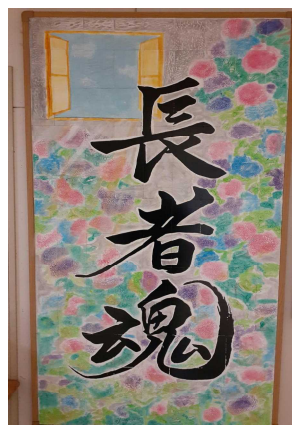 長者魂